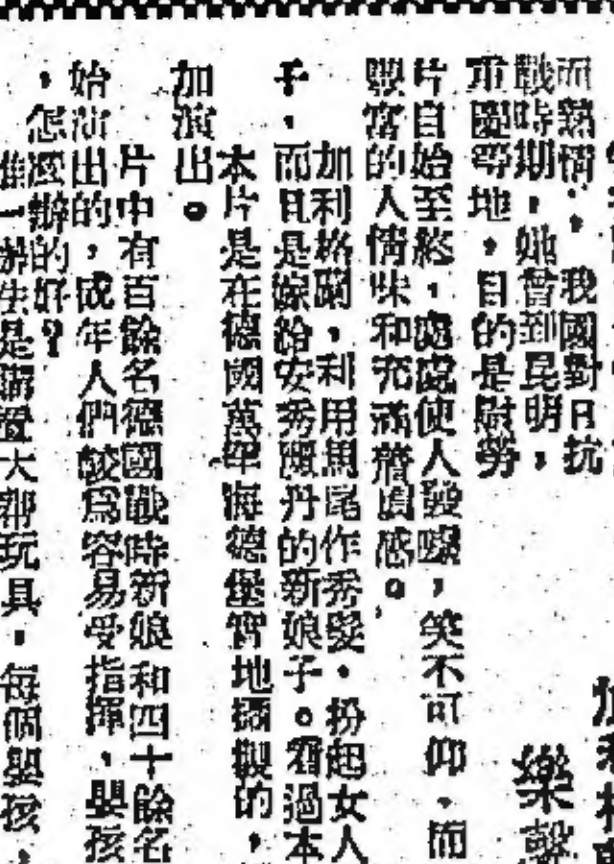 而熱情，我國對日抗
戰時期，她曾到昆明，
重慶等地，目的是慰勞
樂聲
片自始至終，處處使人發噱，笑不可仰，而
的人情味和充滿感。
加利格蘭，利用馬尾作秀髮，扮起女人
子，而且是嫁給安秀丹的新娘子。看過本
本片是在德國萬海德堡實地攝製的，
加演出。
片中有百餘名德國戰時新娘和四十餘名
始演出的，成年人們較為容易受指揮，嬰孩
，怎麼辦的好？
唯一辦法是購置大部玩具，每個嬰孩，